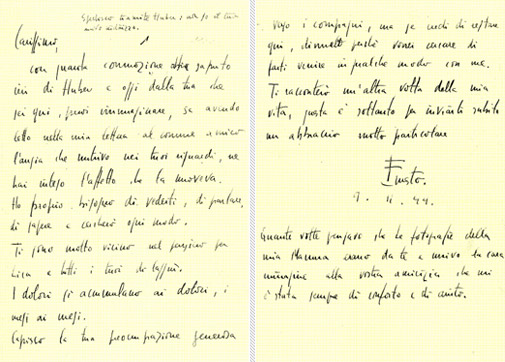 Spedisco tramite Huber, 
Carissimo,
con quanta commozione ho saputo
ieri di Huber e oggi dalla tua che
sei qui, puoi immaginare, se avendo
letto nella mia lettera al comune amico
l'ansia che nutrivo nei tuoi riguardi, ne
hai inteso l'affetto che la muoveva.
Ho proprio bisogno di vederti, di parlare,
di sapere e cercherò ogni modo.
Ti sono molto vicino nel pensiero per
Lica e tutti i tuoi di laggiù.
I dolori si accumulano ai dolori, i
mesi ai mesi.
Capisco la tua preoccupazione generosa
verso i compagni, ma se credi di restare
qui, dimmelo perché vorrei cercare di
farti venire in qualche modo con me.
Ti racconterò un'altra volta della mia
vita, questa è soltanto per inviarti subito
un abbraccio molto particolare
Ernesto.
44
Quante volte pensavo che le fotografie della
mia Mamma erano da te e univo la cara
immagine alla vostra amicizia che mi
è stata sempre di conforto e di aiuto.